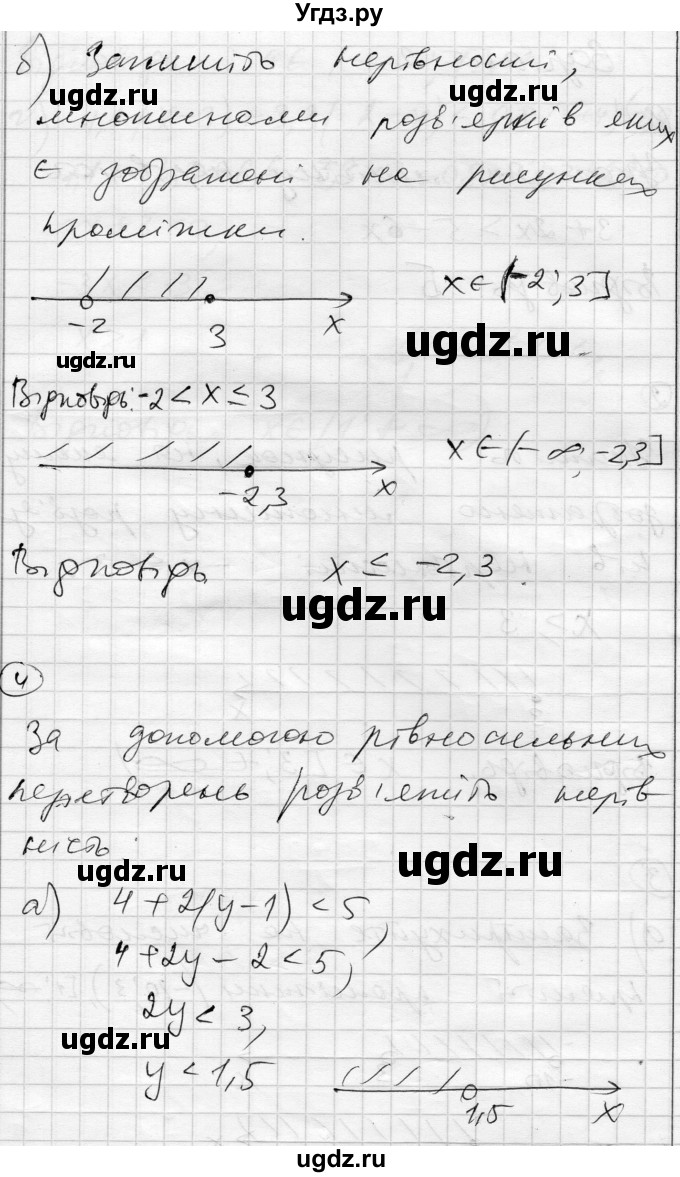 Угдз.ру
б) Запишіть нерівності,
ugdz.ru ugdz.ru
множинами розв'язків яких
є зображені на рисунках
проміжки.
-2 3 x x ∈ (-2; 3]
ugdz.ru
ugdz.ru
Відповідь: -2 < x ≤ 3
-2,3 x x ∈ (-∞; -2,3]
Відповідь x ≤ -2,3.
ugdz.ru
4
За допомогою рівносильних
перетворень розв'яжіть нерів
ність.
ugdz.ru
а) 4 + 2(y - 1) < 5,
4 + 2y - 2 < 5,
2y < 3,
ugdz.ru
y < 1,5
1,5 x
ugdz.ru